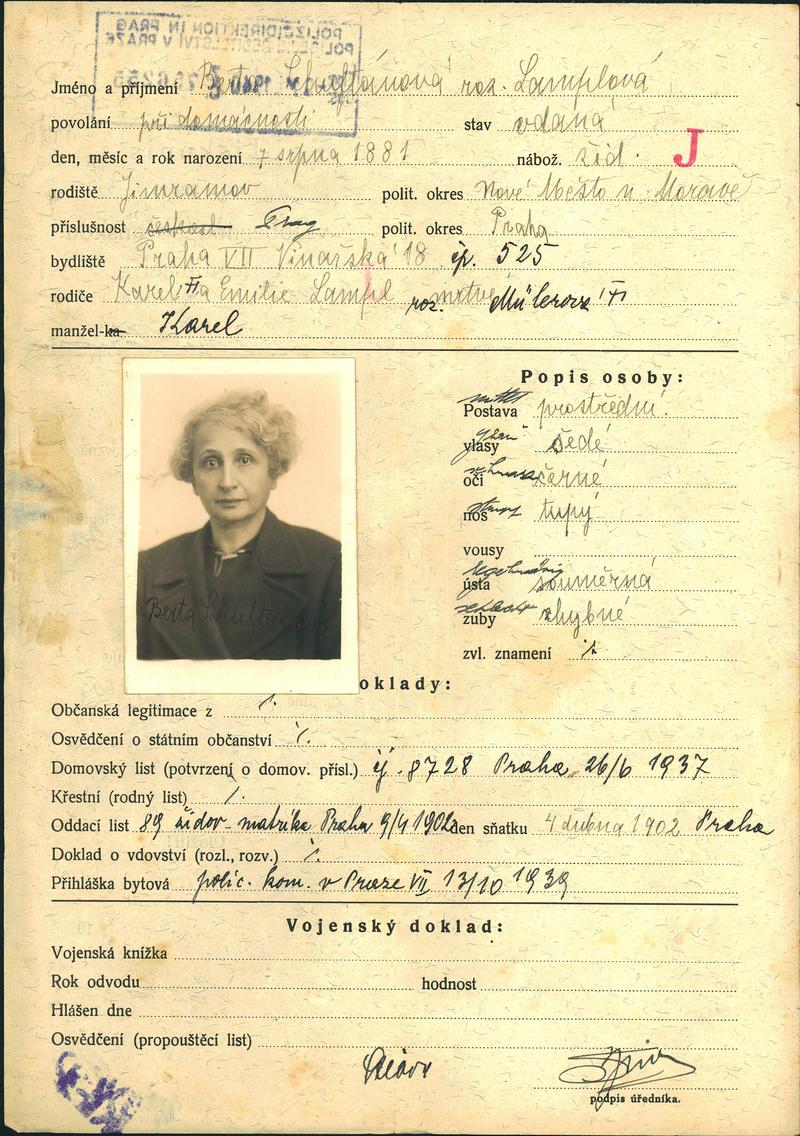 POLIZEIDIREKTION IN PRAG
POLICEJNÍ ŘEDITELSTVÍ V PRAZE
Jméno a příjmení Berta Schuftanová roz. Lamplová
povolání při domácnosti stav vdaná
den, měsíc a rok narození 7 srpna 1881 nábož. žid. J
rodiště Jimramov polit. okres Nové Město n Moravě
příslušnost českosl Prag polit. okres Praha
bydliště Praha VII Vinařská 18 čp. 525
rodiče Karel a Emilie Lampl mrtví roz. Mülerová
manžel-ka Karel
Popis osoby:
Postava prostřední.
vlasy šedé
oči černé
nos stumpf tupý
vousy
ústa souměrná
zuby chybné
zvl. znamení
Berta Schuftanová
oklady:
Občanská legitimace z
Osvědčení o státním občanství
Domovský list (potvrzení o domov. přísl.) čj. 8728 Praha 26/6 1937
Křestní (rodný list)
Oddací list 89 židov. matrika Praha 9/4 1902 den sňatku 4 dubna 1902 Praha
Doklad o vdovství (rozl., rozv.)
Přihláška bytová polic. kom. v Praze VII 13/10 1939
Vojenský doklad:
Vojenská knížka
Rok odvodu hodnost
Hlášen dne
Osvědčení (propouštěcí list)
podpis úředníka.